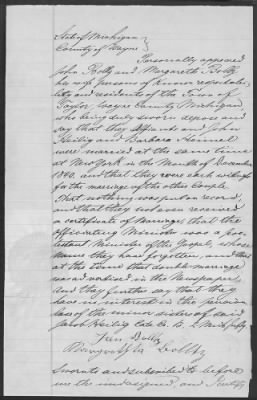 State of Michigan }
County of Wayne }
Personally appeared
John Boltz and Margareth Boltz
his wife persons of known respectabi-
lity and residents of the Town of
Taylor, Wayne County Michigan
who being duly sworn depose and
say that they affiants and John
Heilig and Barbara
were married at the same time
at New York in the Month of December
1840. and that they were each witness
for the marriage of the other Couple.
That nothing was put on record,
and that they not even received
a certificate of Marriage, that the
officiating Minister was a pro-
testant Minister of the Gospel, whose
name they have forgotten, and that
at the time that double marriage
was noticed in the Newspaper,
And they further say that they
have no interest in the pension
case of the minor sisters of said
Jacob Heilig late Co. B. 2 Mich Infty
John Boltz
Margaretha Boltz
Sworn to and subscribed to before
me the undersigned, and I certify